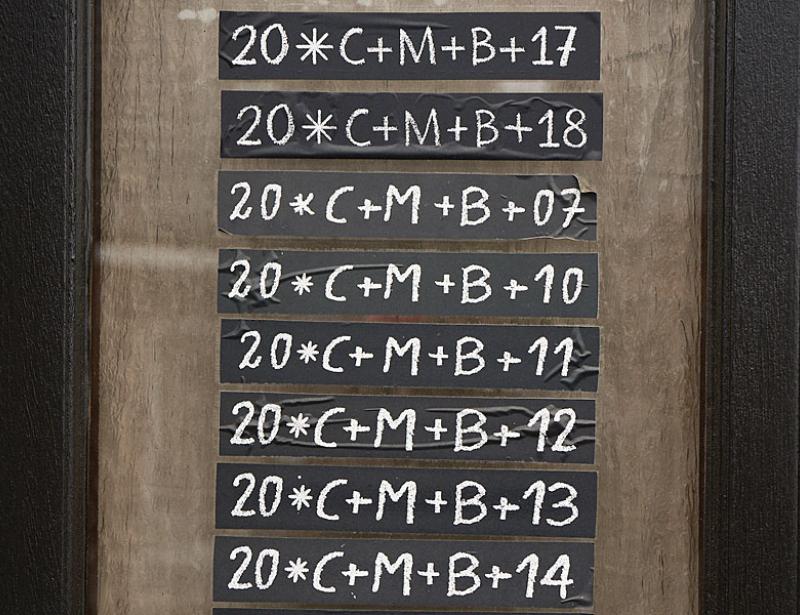 20*C+M+B+17
20*C+M+B+18
20*C+M+B+07
20*C+M+B+10
20*C+M+B+11
20*C+M+B+12
20*C+M+B+13
20*C+M+B+14